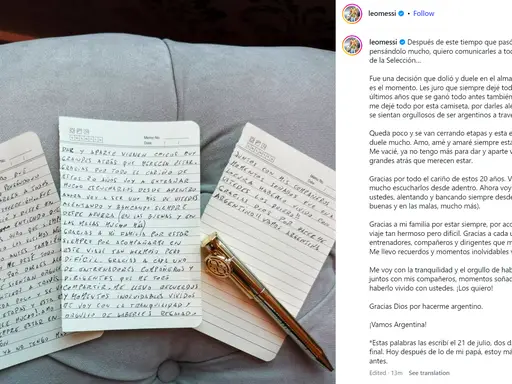 Memo No.
Date
DAR Y APARTE VIENEN CHICOS MUY
GRANDES ATRÁS QUE MERECEN ESTAR.
GRACIAS POR TODO EL CARIÑO DE
ESTOS 20 AÑOS VOY A EXTRAÑAR
MUCHO ESCUCHARLOS DESDE ADENTRO.
AHORA VOY A SER UNO MAS DE USTEDES
ALENTANDO Y BANCANDO SIEMPRE
DESDE AFUERA (EN LAS BUENAS Y EN
LAS MALAS MUCHO MAS)
GRACIAS A MI FAMILIA POR ESTAR
SIEMPRE POR ACOMPAÑARME EN
ESTE VIAJE TAN HERMOSO PERO
DIFICIL GRACIAS A CADA UNO
DE ENTRENADORES COMPAÑEROS Y
DIRIGENTES QUE ME TOCÓ
COMPARTIR. ME LLEVO RECUERDOS
Y MOMENTOS INOLVIDABLES VIVIDOS
ME VOY CON LA TRANQUILIDAD Y
ORGULLO DE HABERLES REGALADO
Memo No.
Date
JUNTOS CON MIS COMPAÑEROS
MOMENTOS
GRACIAS DIOS
ARGENTINO
leomessi • Follow
leomessi Después de este tiempo que pasó
pensándolo mucho, quiero comunicarles a to
de la Selección...
Fue una decisión que dolió y duele en el alma
es el momento. Les juro que siempre dejé tod
últimos años que se ganó todo antes también
me dejé todo por esta camiseta, por darles alé
se sientan orgullosos de ser argentinos a travé
Queda poco y se van cerrando etapas y esta e
duele mucho. Amo, amé y amaré siempre est
Me vacié, ya no tengo más para dar y aparte v
grandes atrás que merecen estar.
Gracias por todo el cariño de estos 20 años. V
mucho escucharlos desde adentro. Ahora voy
ustedes, alentando y bancando siempre desd
buenas y en las malas, mucho más).
Gracias a mi familia por estar siempre, por aco
viaje tan hermoso pero difícil. Gracias a cada u
entrenadores, compañeros y dirigentes que m
Me llevo recuerdos y momentos inolvidables v
Me voy con la tranquilidad y el orgullo de hab
juntos con mis compañeros, momentos soñad
haberlo vivido con ustedes. ¡Los quiero!
Gracias Dios por hacerme argentino.
¡Vamos Argentina!
*Estas palabras las escribí el 21 de julio, dos d
final. Hoy después de lo de mi papá, estoy má
antes.
Edited · 13m See translation